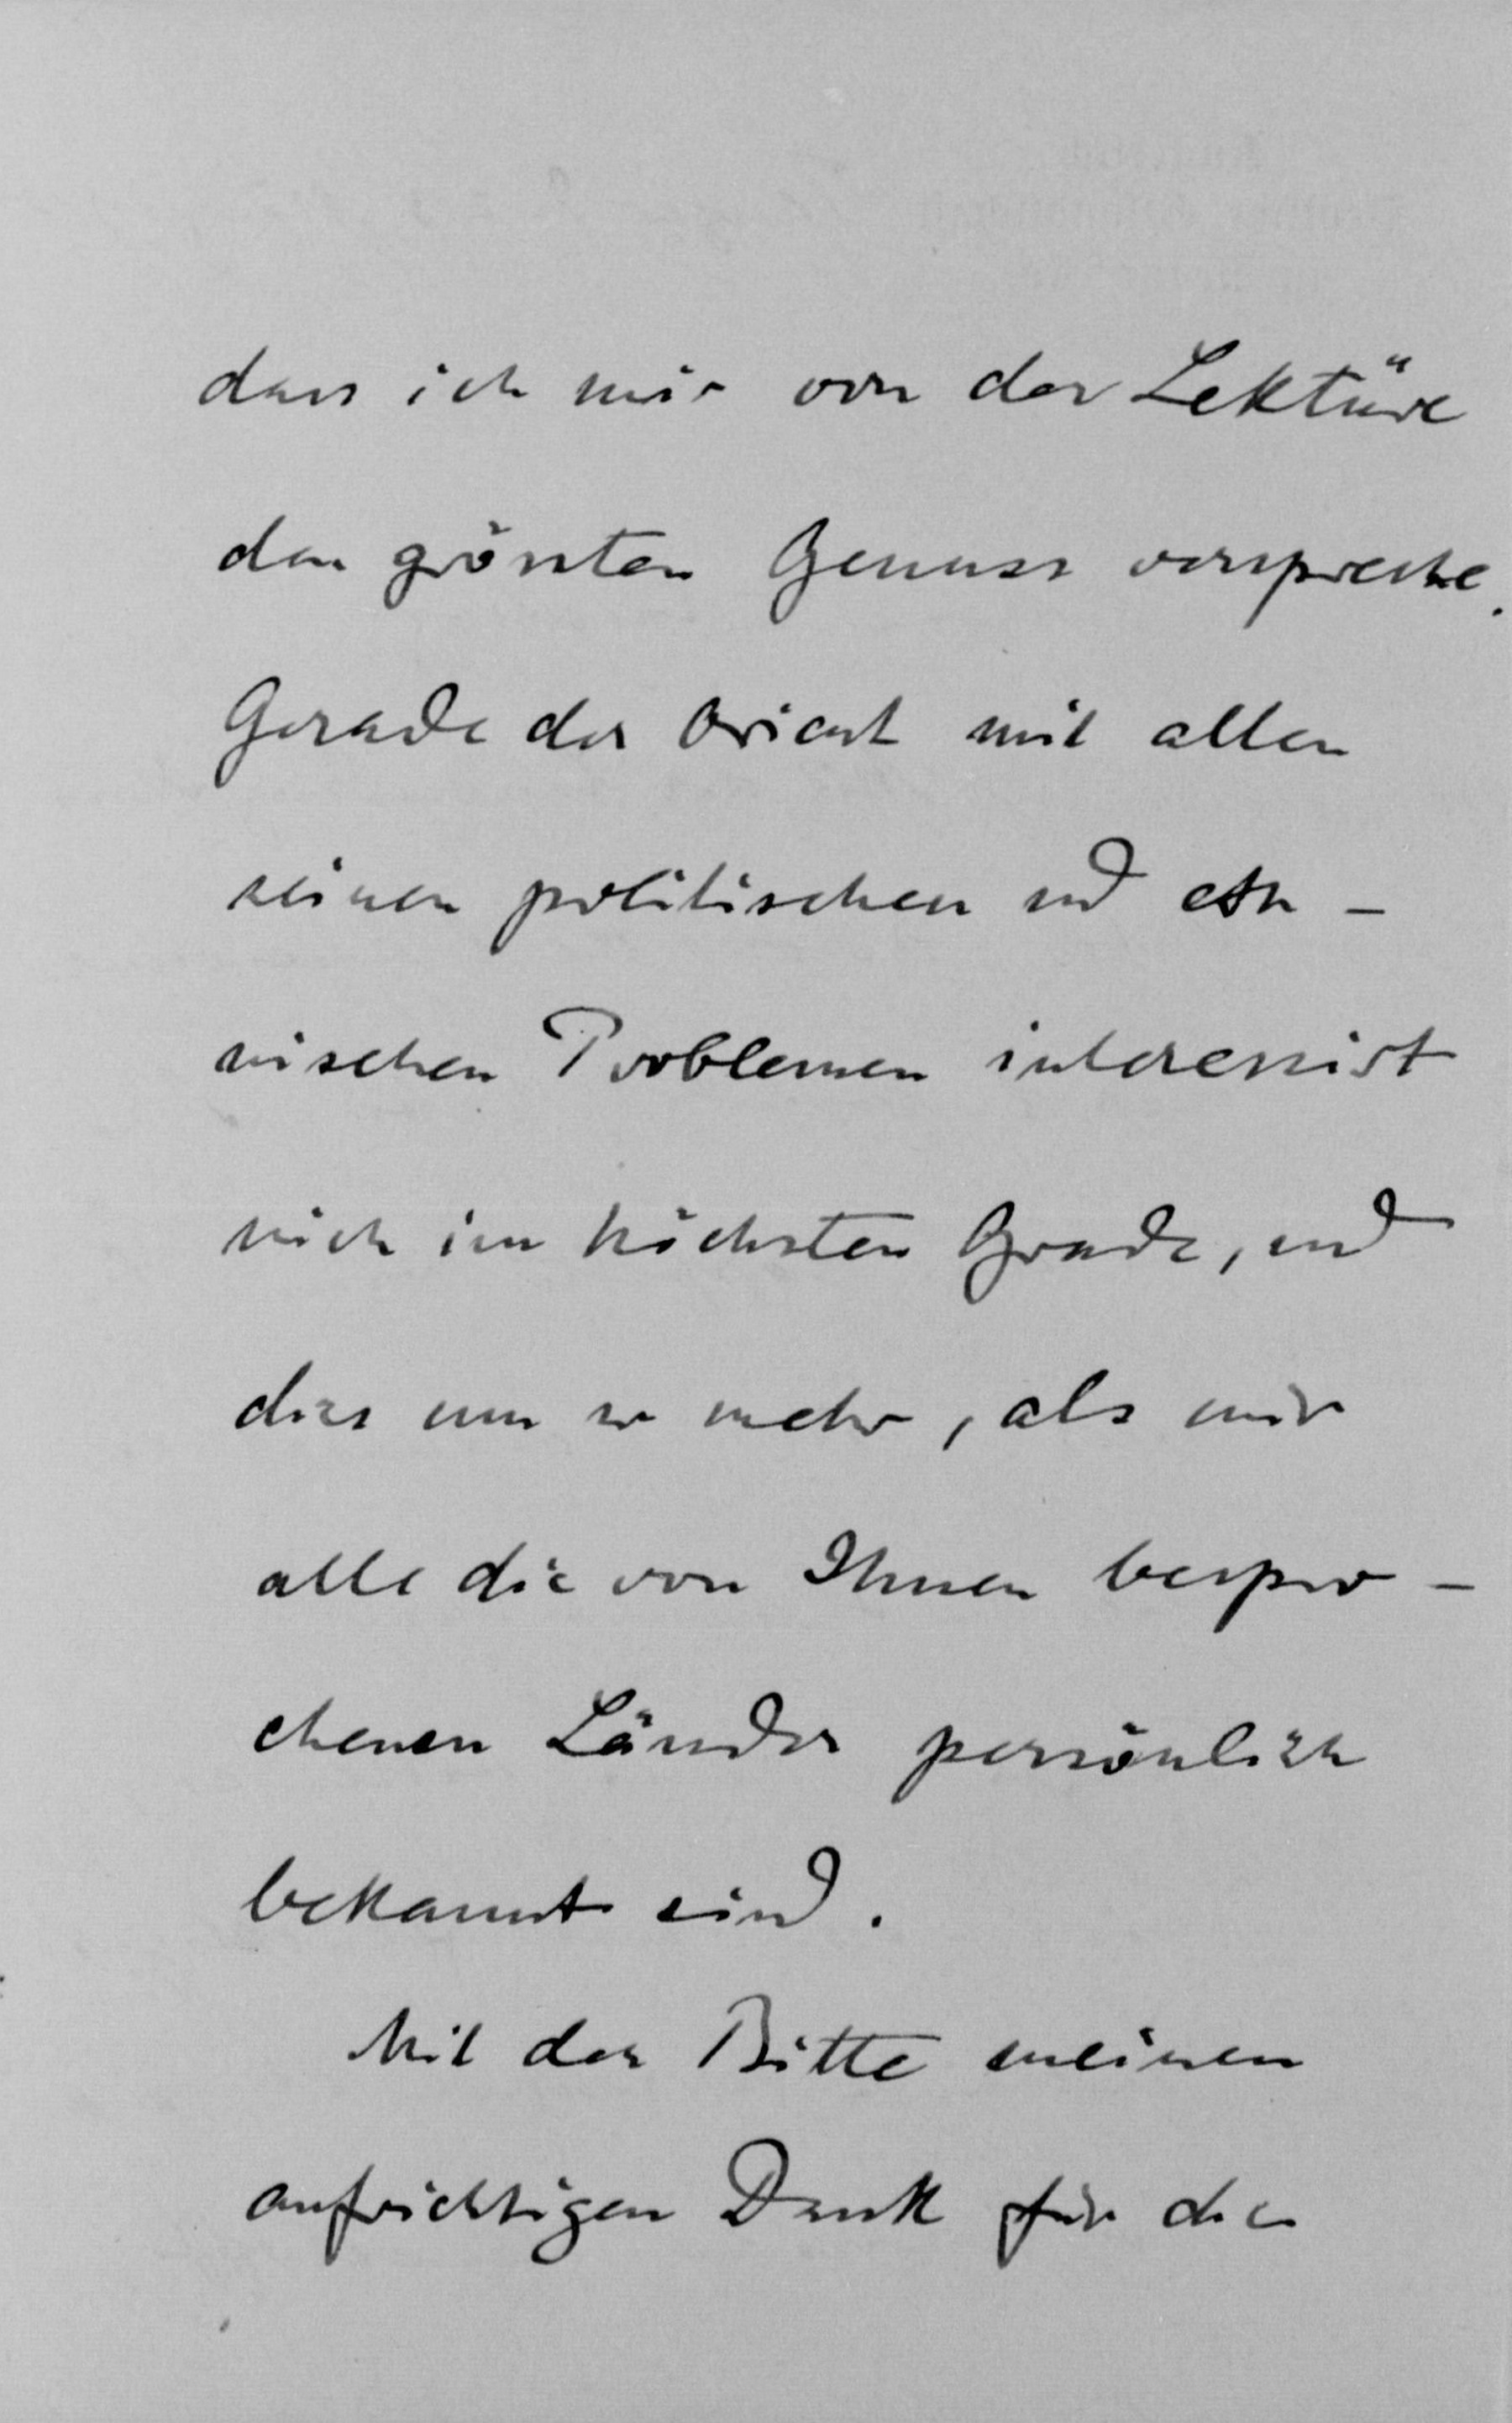 dass ich mir von der Lektüre
den grössten Genuss verspreche.
Gerade der Orient mit allen
seinen politischen und eth-
nischen Problemen interessirt
mich im höchsten Grade, und
dies um so mehr, als mir
alle die von Ihnen bespro-
chenen Länder persönlich
bekannt sind.
Mit der Bitte meinen
aufrichtigen Dank für die